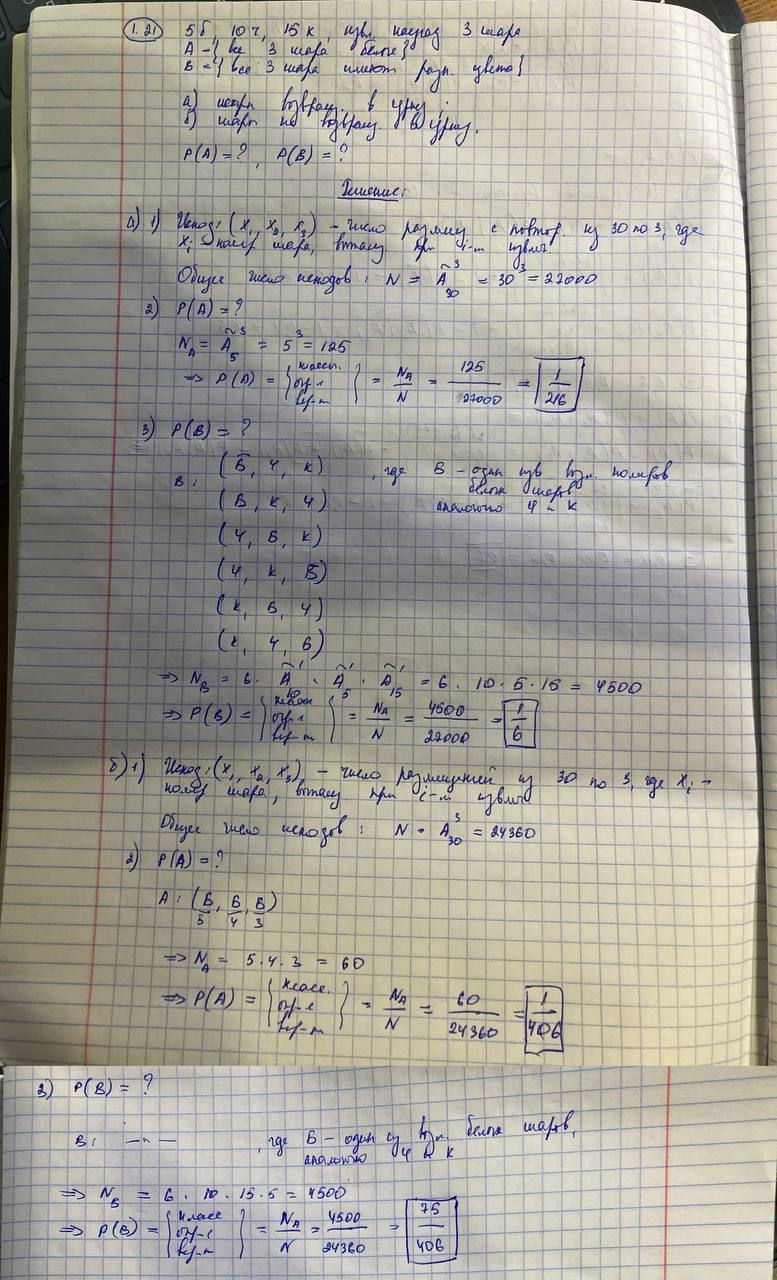 1.21 5б, 10ч, 15к, извл. наугад 3 шара
A = {все 3 шара белые}
B = {все 3 шара имеют разн. цвета}
а) шары возвращ. в урну;
б) шары не возвращ. в урну.
P(A) = ?, P(B) = ?
Решение:
а) 1) Исход: (x₁, x₂, x₃) – число размещ. с повтор. из 30 по 3, где
xᵢ – номер шара, вытащ при i-м извлеч.
Общее число исходов: N = Ã³₃₀ = 30³ = 27000
2) P(A) = ?
N_A = Ã³₅ = 5³ = 125
=> P(A) = {класс. опр-е вер-ти} = N_A/N = 125/27000 = 1/216
3) P(B) = ?
B: (Б, Ч, К) , где Б – один из возм. номеров
белых шаров
(Б, К, Ч) аналогично Ч и К
(Ч, Б, К)
(Ч, К, Б)
(К, Б, Ч)
(К, Ч, Б)
=> N_B = 6 · Ã¹₁₀ · Ã¹₅ · Ã¹₁₅ = 6 · 10 · 5 · 15 = 4500
=> P(B) = {класс опр-е вер-ти} = N_A/N = 4500/27000 = 1/6
б) 1) Исход: (x₁, x₂, x₃) – число размещений из 30 по 3, где xᵢ –
номер шара, вытащ при i-м извлеч
Общее число исходов: N = A³₃₀ = 24360
2) P(A) = ?
A: (Б, Б, Б)
5 4 3
=> N_A = 5·4·3 = 60
=> P(A) = {класс. опр-е вер-ти} = N_A/N = 60/24360 = 1/406
3) P(B) = ?
B: —"— , где Б – один из возм. белых шаров,
аналогично Ч и К
=> N_B = 6 · 10 · 15 · 5 = 4500
=> P(B) = {класс опр-е вер-ти} = N_A/N = 4500/24360 = 75/406